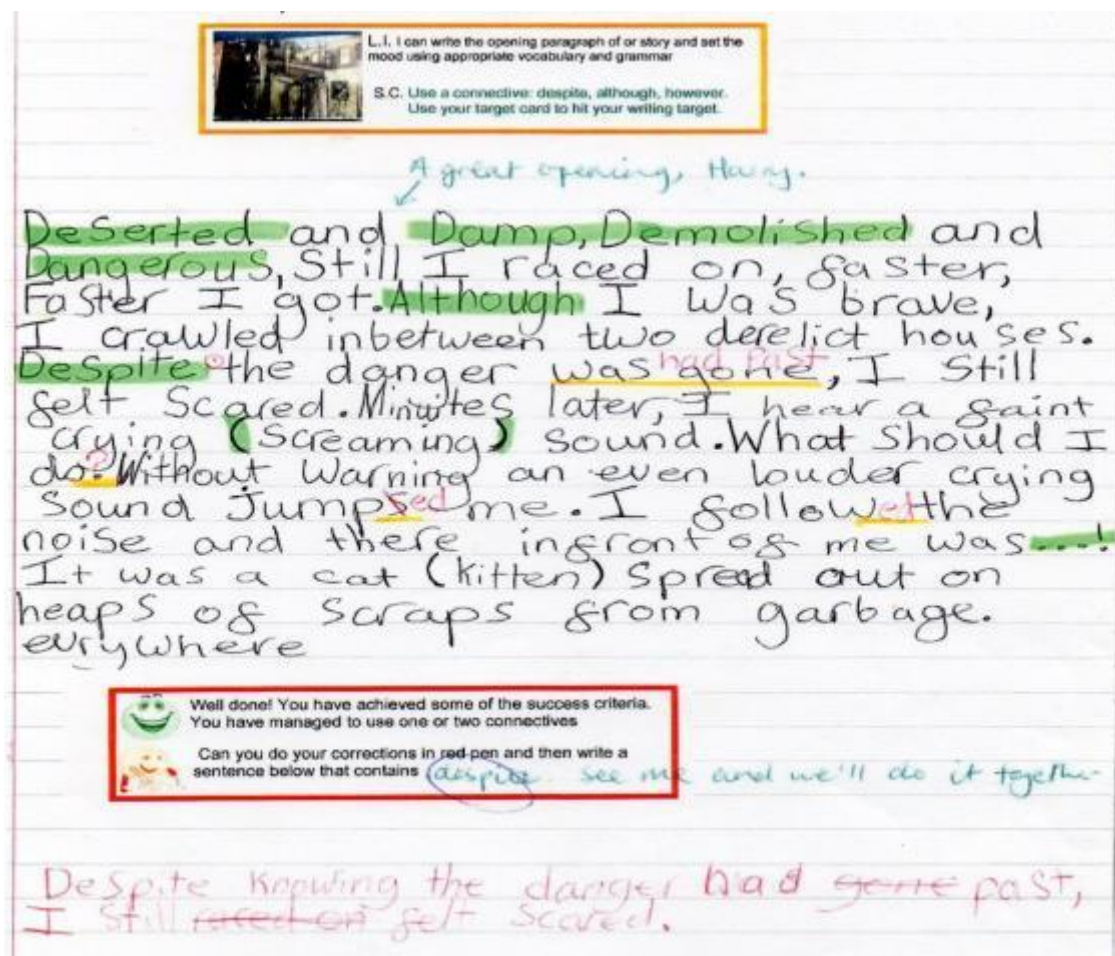 L.I. I can write the opening paragraph of or story and set the
mood using appropriate vocabulary and grammar
S.C. Use a connective: despite, although, however.
Use your target card to hit your writing target.
A great opening, Harry.
Deserted and Damp, Demolished and
Dangerous, Still I raced on, faster,
Faster I got. Although I was brave,
I crawled inbetween two derelict houses.
had past
Despite the danger was gone, I Still
felt Scared. Minutes later, I hear a faint
crying (Screaming) Sound. What Should I
do? Without Warning an even louder crying
Sound Jumpsed me. I followed the
noise and there infront of me was....!
It was a cat (kitten) Spread out on
heaps of Scraps from garbage.
evrywhere
Well done! You have achieved some of the success criteria.
You have managed to use one or two connectives
Can you do your corrections in red pen and then write a
sentence below that contains despite see me and we'll do it together
Despite Knowing the danger had gone past,
I Still raced on felt Scared.